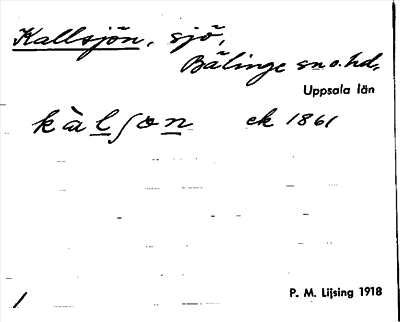 Kallsjön, sjö,
Bälinge sn o. hd,
Uppsala län
kàlʃɷn ek 1861
P. M. Lijsing 1918
1